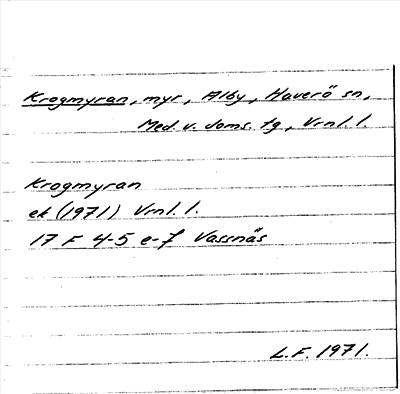 Krogmyran, myr, Alby, Haverö sn,
Med. v. doms. tg, Vrnl. l.
Krogmyran
ek (1971) Vrnl. l.
17 F 4-5 e-f Vassnäs
L.F. 1971.